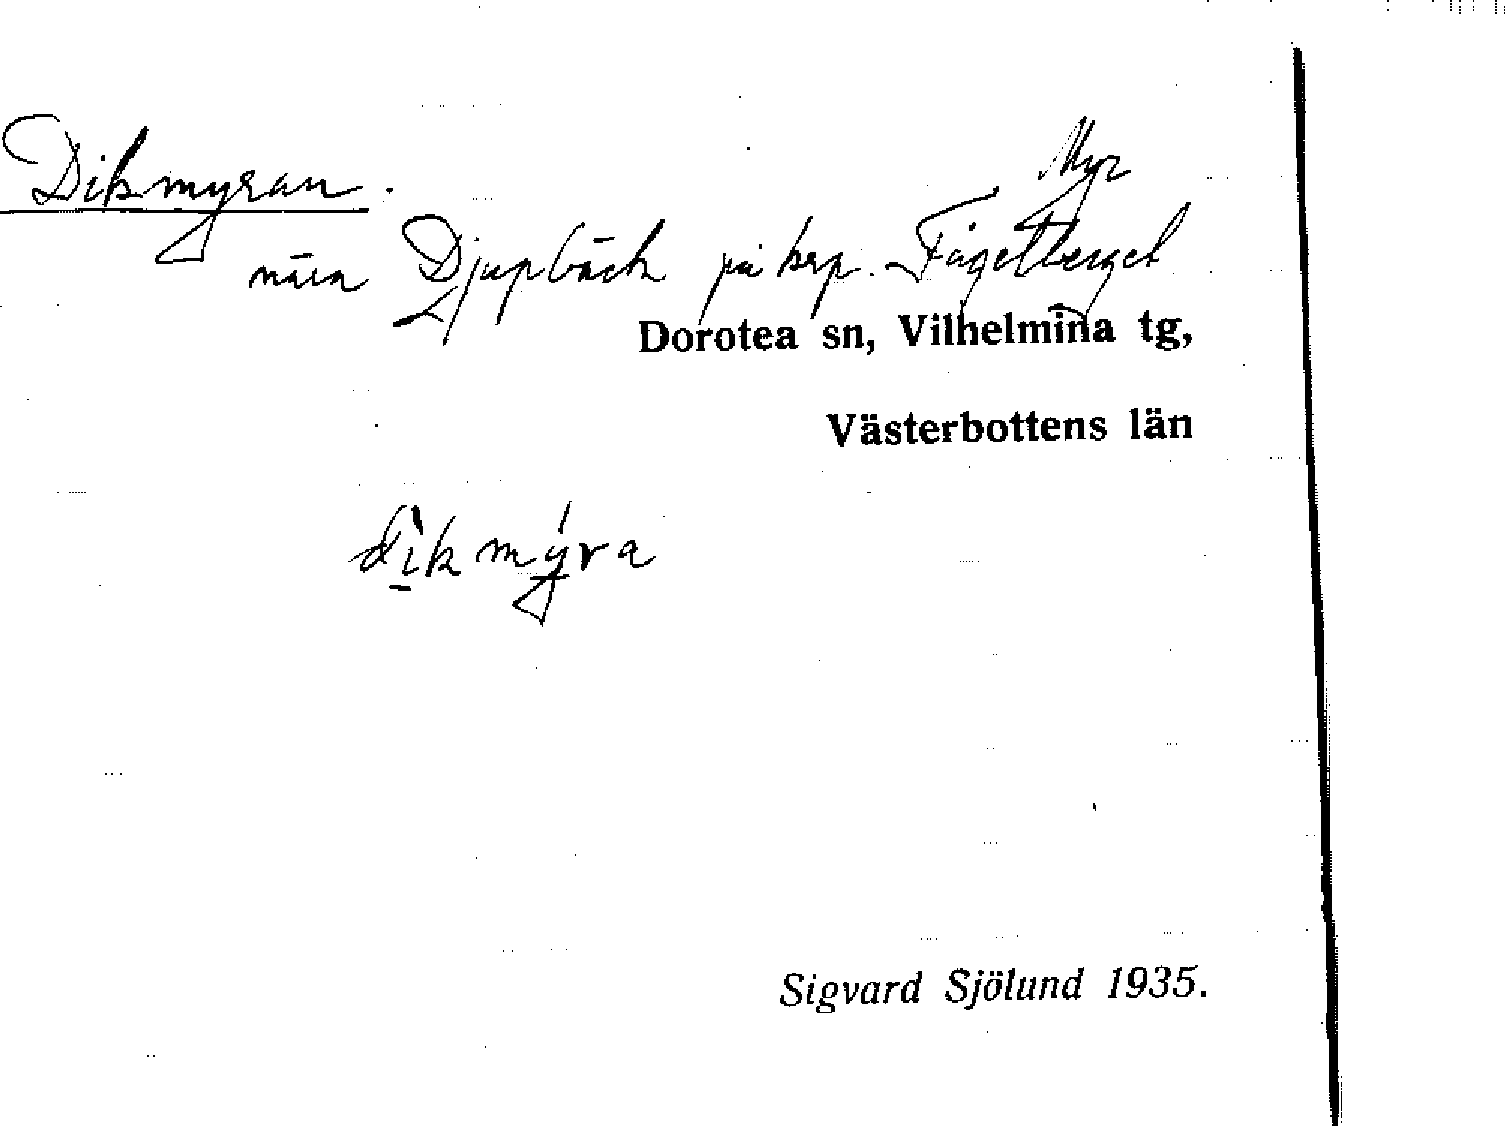 Dikmyran.
Myr
nära Djupbäck på krp. Fågelberget
Dorotea sn, Vilhelmina tg,
Västerbottens län
dìkmýra
Sigvard Sjölund 1935.